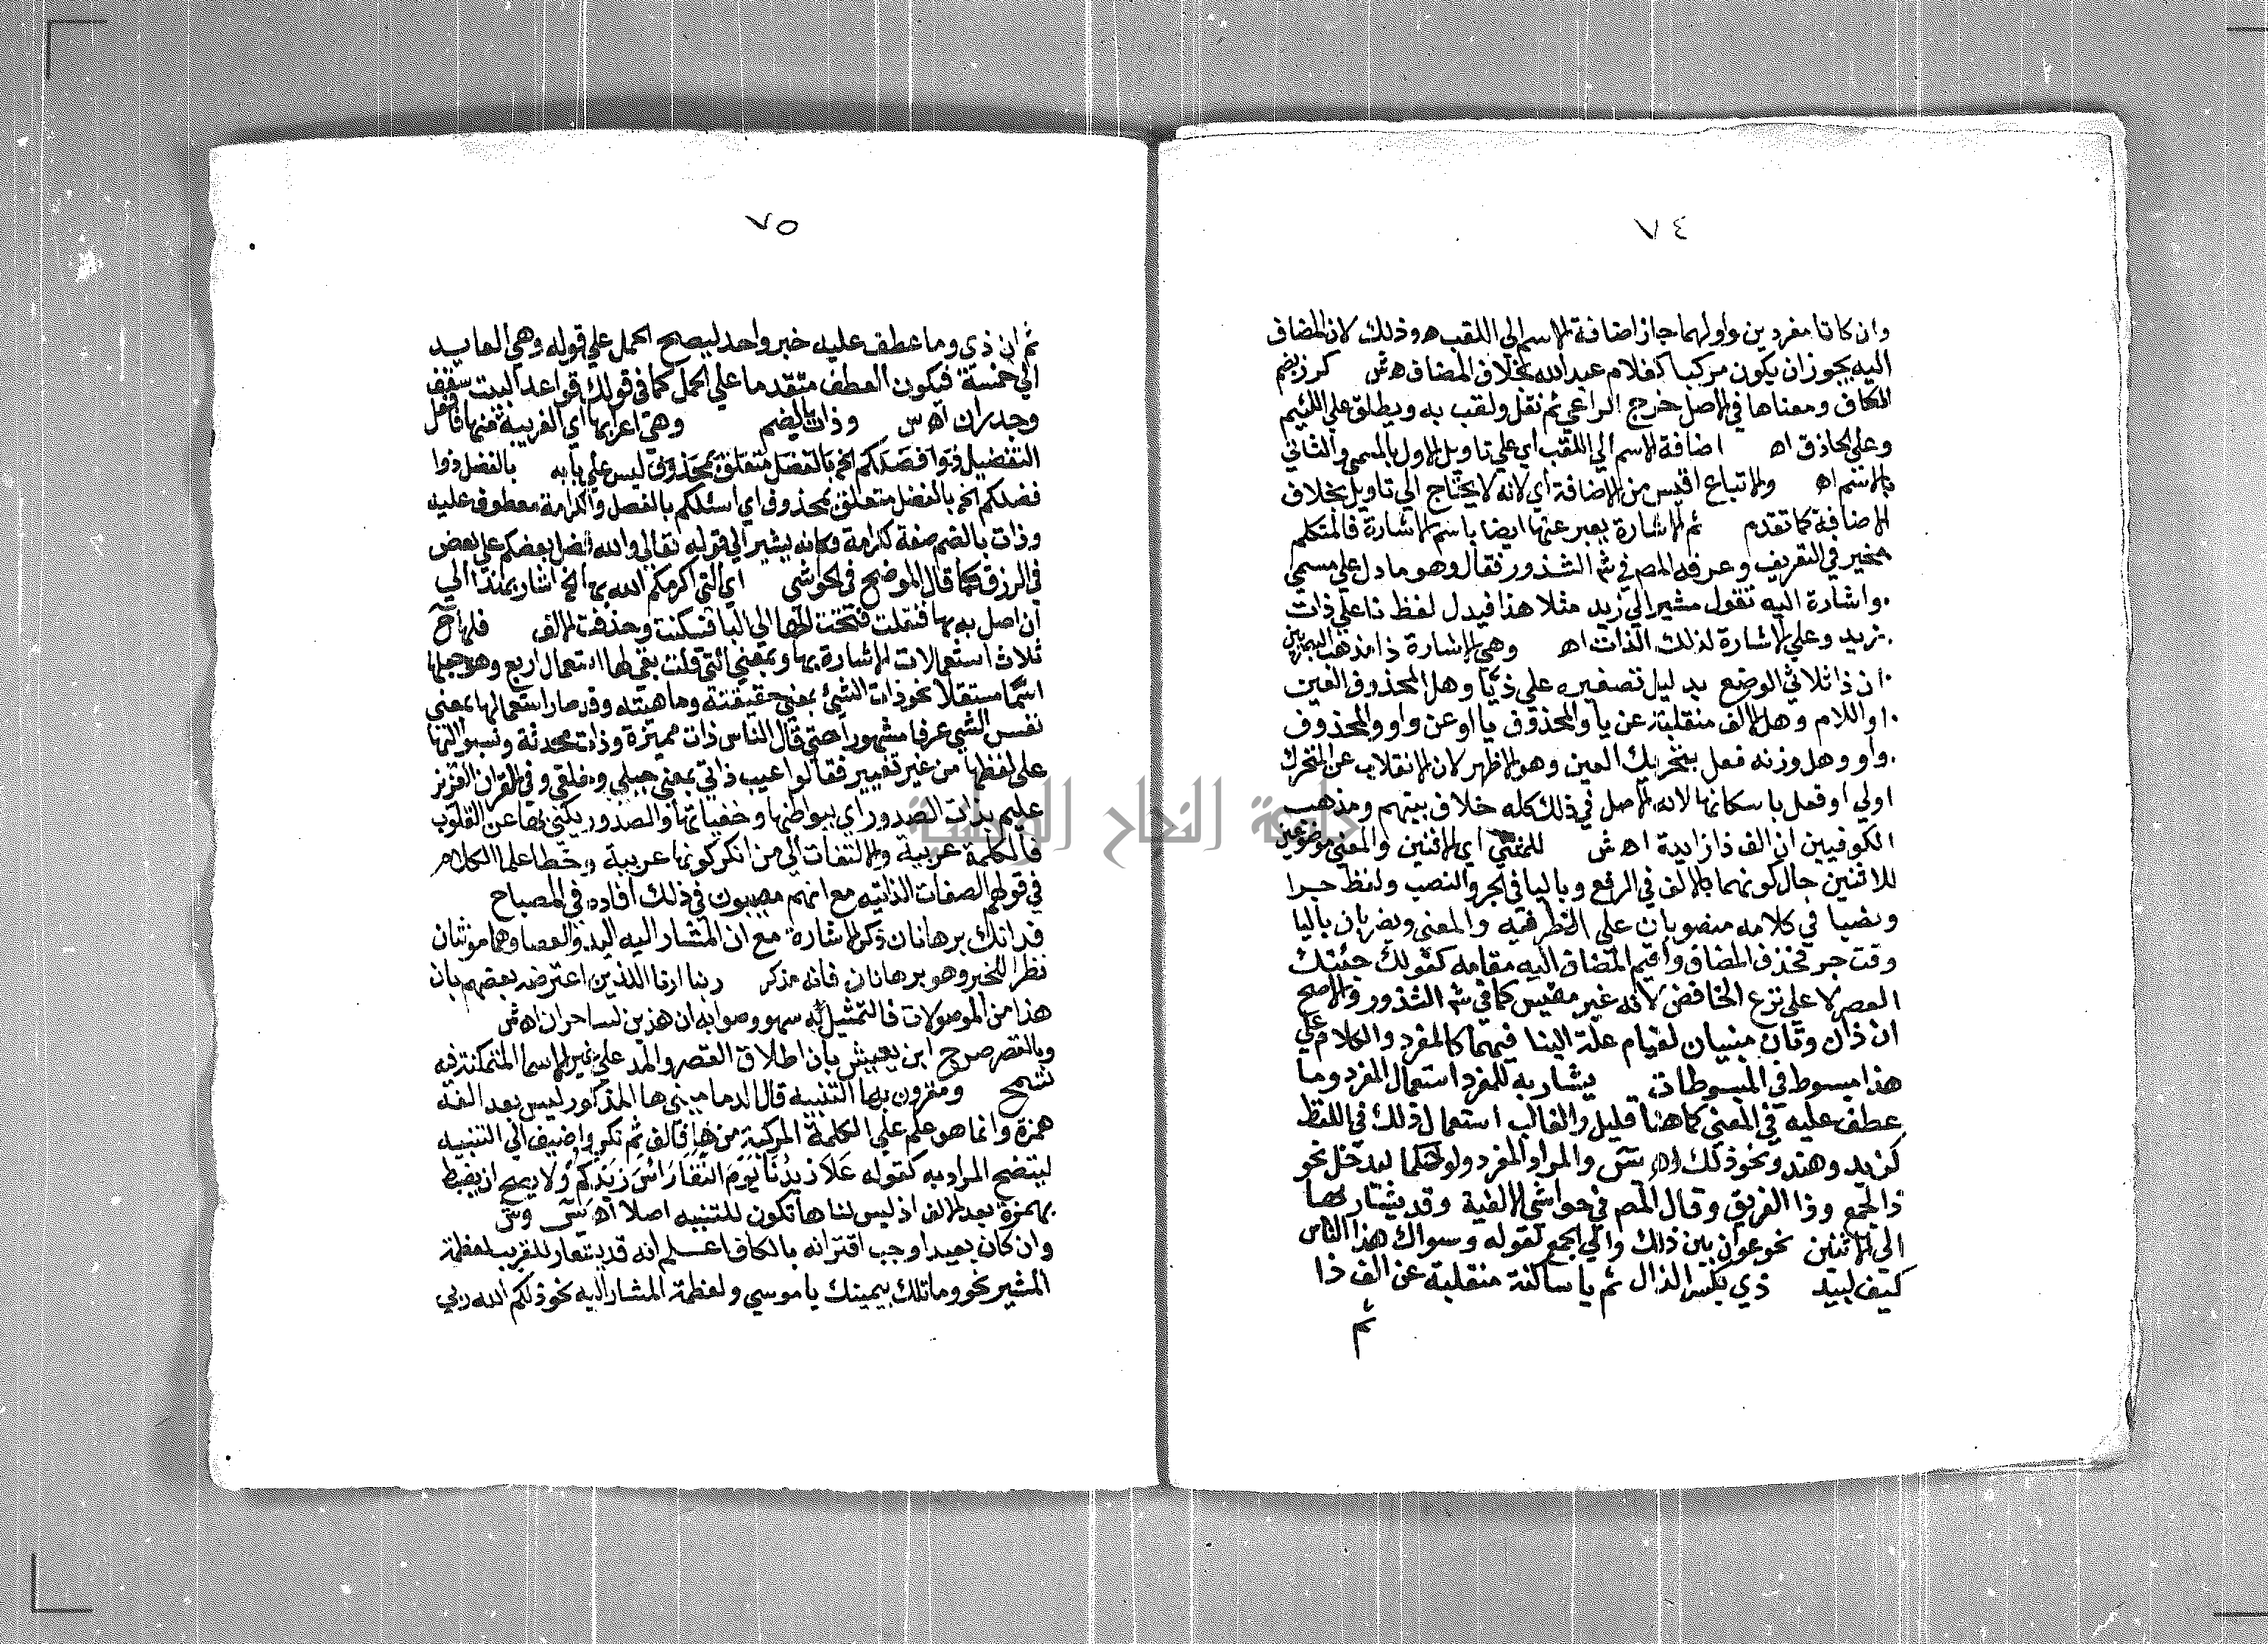 ٧٤
وان كانا مفردين واولهما جاز اضافة الاسم الي اللقب ه وذلك لان المضاف
اليه يجوز ان يكون مركبا كغلام عبد الله بخلاف المضاف ه ش كرز بضم
الكاف ومعناها في الاصل خرج الراعي ثم نقل ولقب به ويطلق علي اللئيم
وعلي الحاذق اه اضافة الاسم الي اللقب اي علي تاويل الاول بالمسمي والثاني
بالاسم اه والاتباع اقيس من الاضافة اي لانه لا يحتاج الي تاويل بخلاف
الاضافة كما تقدم ثم الاشارة يعبر عنها ايضا باسم الاشارة فالمتكلم
مخير في التعريف وعرفه المص في ش الشذور فقال وهو ما دل علي مسمي
واشارة اليه تقول مشيرا الي زيد مثلا هذا فيدل لفظ ذا علي ذات
زيد وعلي الاشارة لذلك الذات اه وهي الاشارة ذا مذهب البصريين
ان ذا ثلاثي الوضع بدليل تصغيره علي ذيا وهل المحذوف العين
او اللام وهل الالف منقلبة عن يا والمحذوف يا او عن واو والمحذوف
واو وهل وزنه فعل بتحريك العين وهو الاظهر لان الانقلاب عن المتحرك
اولي او فعل باسكانها لانه الاصل في ذلك كله خلاف بينهم ومذهب
الكوفيين ان الف ذا زايدة اه ش للمثني اي الاثنين والمعني موضوعين
للاثنين حال كونهما بالالف في الرفع وباليا في الجر والنصب ولفظ جرا
ونصبا في كلامه منصوبان علي الظرفيه والمعني ويضربان باليا
وقت جر فحذف المضاف واقيم المضاف اليه مقامه كقولك جئتك
العصر لا علي نزع الخافض لانه غير مقيس كما في ش الشذور والاصح
ان ذان وتان مبنيان لقيام علة البنا فيهما كالمفرد والكلام علي
هذا مبسوط في المبسوطات يشار به للمفرد استعمال المفرد وما
عطف عليه في المعني كما هنا قليل والغالب استعمال ذلك في اللفظ
كزيد وهند ونحو ذلك اه ش والمراد المفرد ولو حكما ليدخل نحو
ذا الجمع وذا الفريق وقال المص في حواشي الالفية وقد يشار بها
الي الاثنين نحو عوان بين ذلك والي الجمع كقوله وسواك هذا الناس
كيف لبيد ذي بكسر الذال ثم يا ساكنة منقلبة عن الف ذا
ثم
٧٥
ثم ان ذي وما عطف عليه خبر واحد ليصح الحمل علي قوله وهي العايد
الي خمسة فيكون العطف متقدما علي الحمل كما في قولك قواعد البيت سقف
وجدران اه س وذات بالضم وهي اعربها اي الغريبة منها فافعل
التفضيل ذوا فضلكم الخ بالفضل متعلق بمحذوف ليس علي بابه بالفضل ذوا
فضلكم الخ بالفضل متعلق بمحذوف اي اسئلكم بالفضل والكرامة معطوف عليه
وذات بالضم صفة كرامة وكانه يشير الي قوله تعالي والله فضل بعضكم علي بعض
في الرزق كما قال الموضح في الحواشي اي التي اكرمكم الله بها الخ اشار بهذا الي
ان اصل به بها فنقلت فتحت الها الي البا فسكنت وحذفت الالف فلها ح
ثلاث استعمالات الاشارة بها وبمعني التي قلت بقي لها استعمال اربع وهو جعلها
اسما مستقلا نحو ذات الشئ بمعني حقيقته وماهيته وقد صار استعمالها بمعني
نفس الشي عرفا مشهورا حتي قال الناس ذات مميزة وذات محدثة ونسبوا اليها
علي لفظها من غير تغيير فقالوا عيب ذاتي بمعني جبلي وخلقي وفي القران العزيز
عليم بذات الصدور اي ببواطنها وخفياتها والصدور يكني بها عن القلوب
فالكلمة عربية والالتفات الي من انكر كونها عربية وخطا علما الكلام
في قولهم الصفات الذاتيه مع انهم مصيبون في ذلك افاده في المصباح
فذانك برهانان ذكر الاشارة مع ان المشار اليه اليد والعصا وهما مونثان
نظرا للخبر وهو برهانان فانه مذكر ربنا ارنا اللذين اعترضه بعضهم بان
هذا من الموصولات فالتمثيل به سهو وصوابه ان هذين لساحران اه ش
وبالقصر صرح ابن يعيش بان اطلاق القصر والمد علي غير الاسما المتمكنة فيه
تسمح ومقرون بها التنبيه قال الدماميني ها المذكور ليس بعد الفه
همزة وانما هو علم علي الكلمة المركبة من ها فالف ثم نكر واضيف الي التنبيه
ليتضح المراد به كقوله عَلَا زيدُنَا يَوْمَ النَّقَا رَاسَ زَيْدِكُمْ ولا يصح ان يضبط
بهمزة بعد الالف اذ ليس لنا هاء تكون للتنبيه اصلا اه س وش
وان كان بعيدا وجب اقترانه بالكاف اعلم انه قد يستعار للقريب لعظمة
المشير نحو وما تلك بيمينك يا موسي ولعظمة المشار اليه نحو ذلكم الله ربي
جامعة النجاح الوطنية